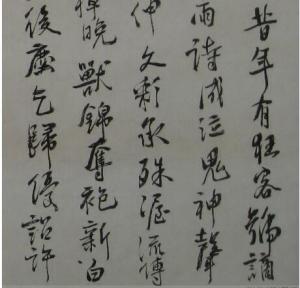 昔年有狂客號謫
雨詩成泣鬼神聲
伸文彩承殊渥流傳
晚獸錦奪袍新白
後塵乞歸優詔許